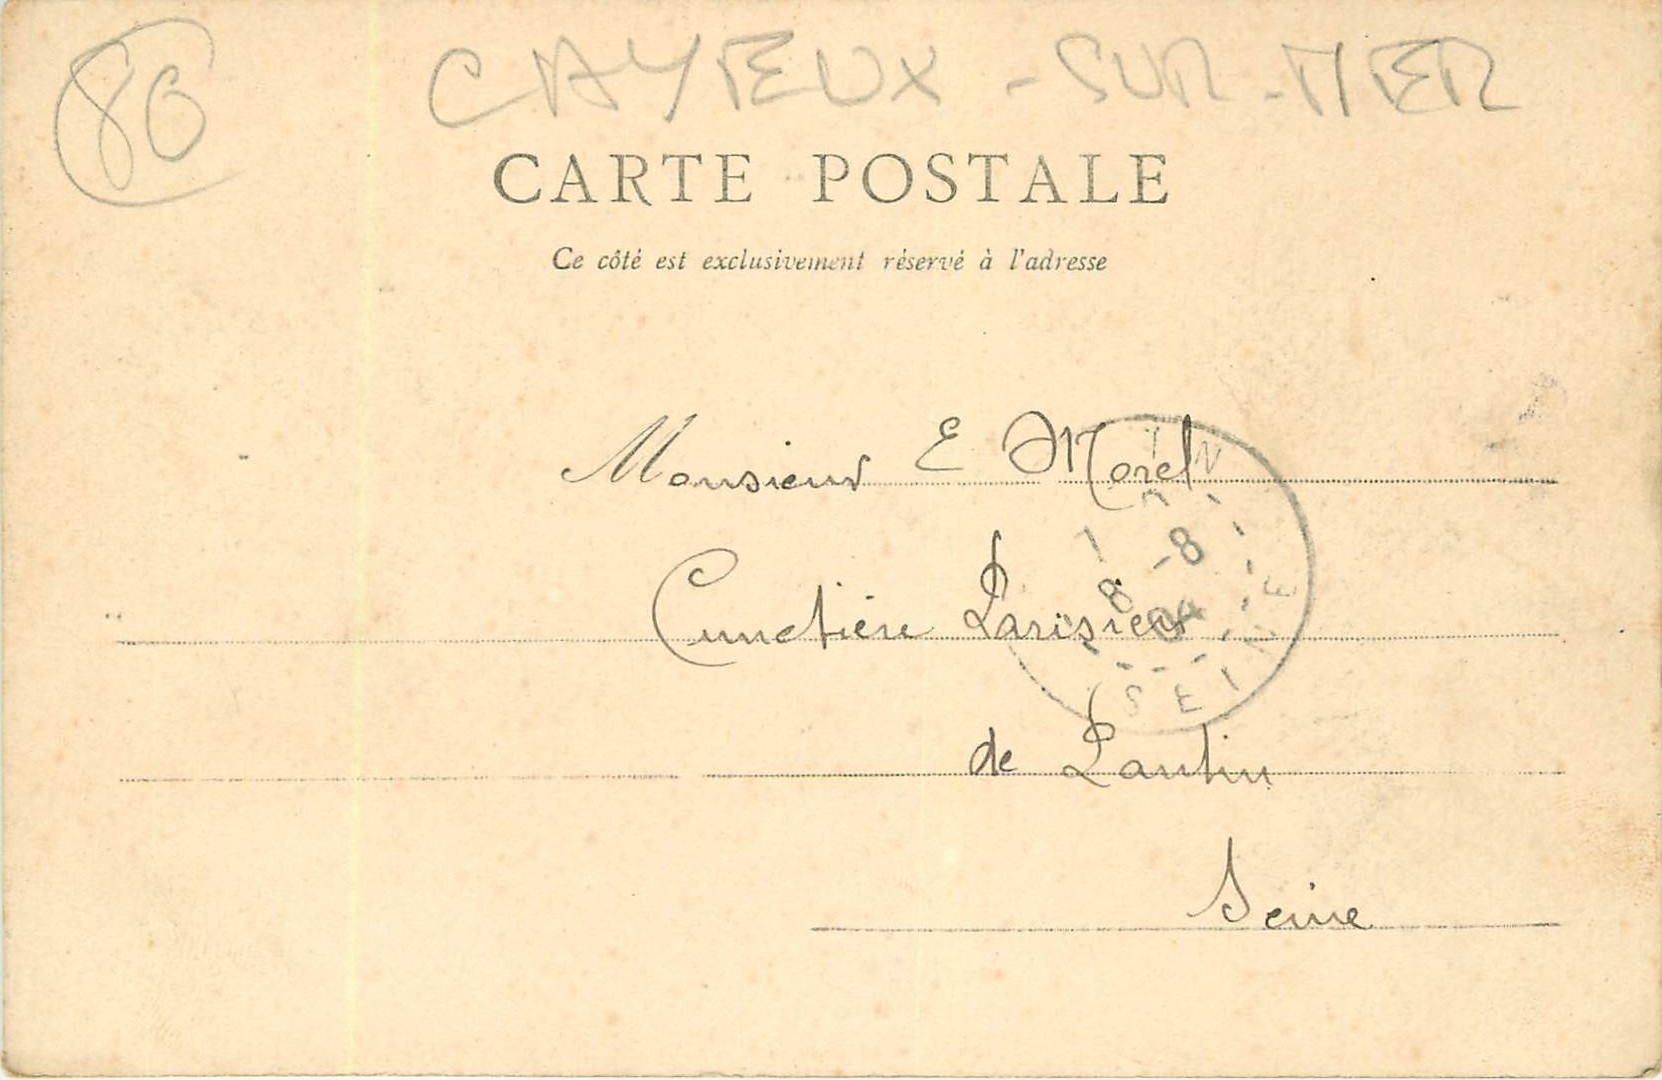 80
CAYEUX - SUR - MER
CARTE POSTALE
Ce côté est exclusivement réservé à l'adresse
Monsieur E Morel
Cimetière Parisien
de Pantin
Seine
8 -8
04
SEINE